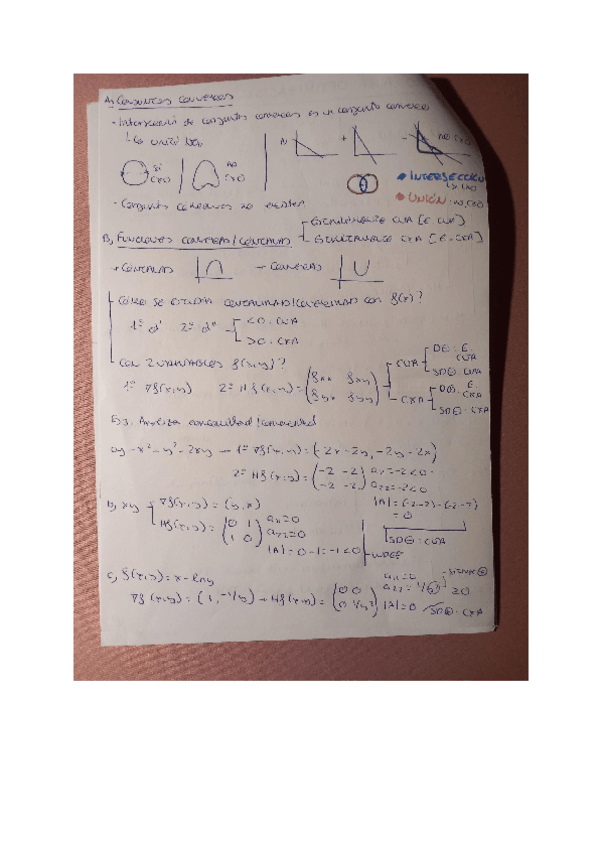 A) CONJUNTOS CONVEXOS
- Intersección de conjuntos convexos es un conjunto convexo
↳ La unión NO
SÍ CXO
NO CXO
• INTERSECCIÓN
• UNIÓN: NO, CXO
- Conjuntos cóncavos no existen
B) FUNCIONES CONVEXAS/CÓNCAVAS
ESTRICTAMENTE CVA [E. CVA]
ESTRICTAMENTE CXA [E. CXA]
→ CÓNCAVAS
→ CONVEXAS
CÓMO SE ESTUDIA CONCAVIDAD/CONVEXIDAD CON f(x)?
1º d' 2º d''
<0: CVA
>0: CXA
CON 2 VARIABLES f(x,y)?
1º ∇f(x,y) 2º Hf(x,y) = (fxx fxy
fyx fyy)
CVA
D⊖: E. CVA
SD⊖: CVA
CXA
D⊕: E. CXA
SD⊕: CXA
Ej. Analiza concavidad/convexidad
a) -x² - y² - 2xy → 1º ∇f(x,y) = (-2x-2y, -2y-2x)
2º Hf(x,y) = (-2 -2
-2 -2) a₁₁ = -2 < 0
a₂₂ = -2 < 0
|A| = (-2·-2) - (-2·-2)
= 0
SD⊖: CVA
b) xy
∇f(x,y) = (y, x)
Hf(x,y) = (0 1
1 0) a₁₁ = 0
a₂₂ = 0
|A| = 0 - 1 = -1 < 0
INDEF
c) f(x,y) = x - ln y
∇f(x,y) = (1, -1/y) → Hf(x,y) = (0 0
0 1/y²) a₁₁ = 0
a₂₂ = 1/y² ≥ 0
siempre ⊕
|A| = 0
SD⊕: CXA